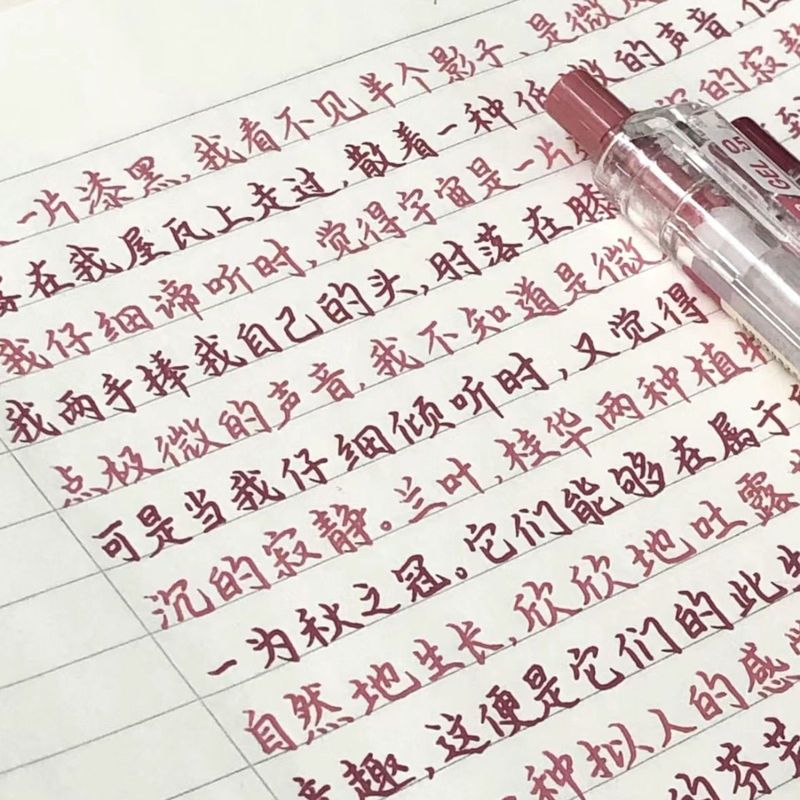 一片漆黑,我看不见半个影子、是微风
在我屋瓦上走过,散着一种低微的声音,但
我仔细谛听时,觉得宇宙是一片沉的寂静
我两手捧我自己的头,肘落在膝
点极微的声音,我不知道是微
可是当我仔细倾听时,又觉得
沉的寂静。兰叶,桂华两种植物
一为秋之冠。它们能够在属于
自然地生长,欣欣地吐露
意趣,这便是它们的此生
种拟人的感觉
的芬芳
05
GEL